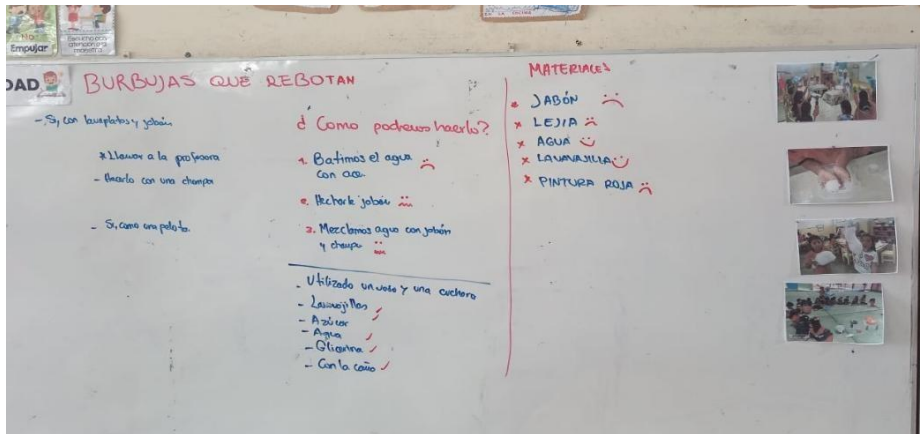 No
Empujar
DAD
BURBUJAS QUE REBOTAN
- Si, con lavaplatos y jabón
* Llamar a la profesora
- Hacerlo con una champa
- Si, como una pelota.
¿ Como podremos hacerlo?
1. Batimos el agua
con ace.
2. Hecharle jabón
3. Mezclamos agua con jabón
y champu
- Utilizado un vaso y una cuchara
- Lavavajillas
- Azúcar
- Agua
- Glicerina
- Con la caño
MATERIALES
* JABÓN
* LEJIA
* AGUA
* LAVAVAJILLA
* PINTURA ROJA